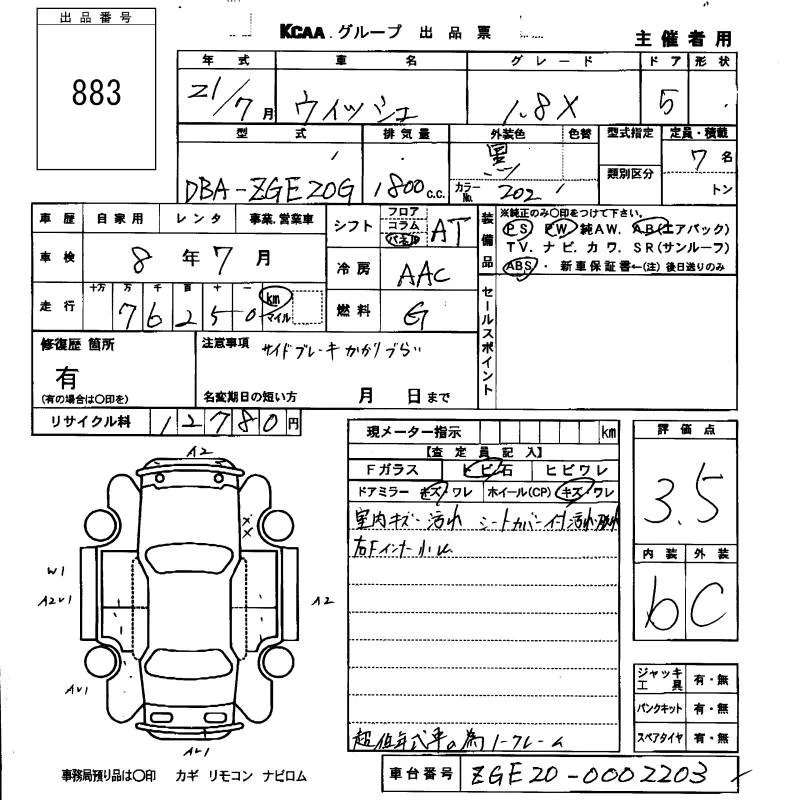 出品番号
883
KCAA.グループ 出品票
主催者用
年式 車名 グレード ドア 形状
21/7月 ウィッシュ 1.8X 5
型式 排気量 外装色 色替 型式指定 定員・積載
DBA-ZGE20G 1800 c.c. 黒 類別区分 7名
カラーNo. 202 トン
車歴 自家用 レンタ 事業.営業車
シフト フロア コラム AT
装備品
※純正のみ○印をつけて下さい。
PS PW 純AW. AB(エアバック)
TV. ナビ. カワ. SR(サンルーフ)
ABS・ 新車保証書←(注) 後日送りのみ
車検 8年7月
冷房 AAC
走行 十万 万 千 百 十 一 km マイル
76250
燃料 G
セールスポイント
修復歴 箇所
有
(有の場合は○印を)
注意事項 サイドブレーキかかりづらい
名変期日の短い方 月 日まで
リサイクル料 12780円
現メーター指示 km
評価点
3.5
【査定員記入】
Fガラス トビ石 ヒビワレ
ドアミラー キズ・ワレ ホイール(CP) キズ・ワレ
室内キズ・汚れ シートカバー付汚れ破れ
右Fインナー小ム
内装 外装
b C
A2
W1
A2U1
A2
AU1
AU1
ジャッキ工具 有・無
パンクキット 有・無
スペアタイヤ 有・無
超低年式車の為ノークレーム
事務局預り品は○印 カギ リモコン ナビロム
車台番号 ZGE20-0002203